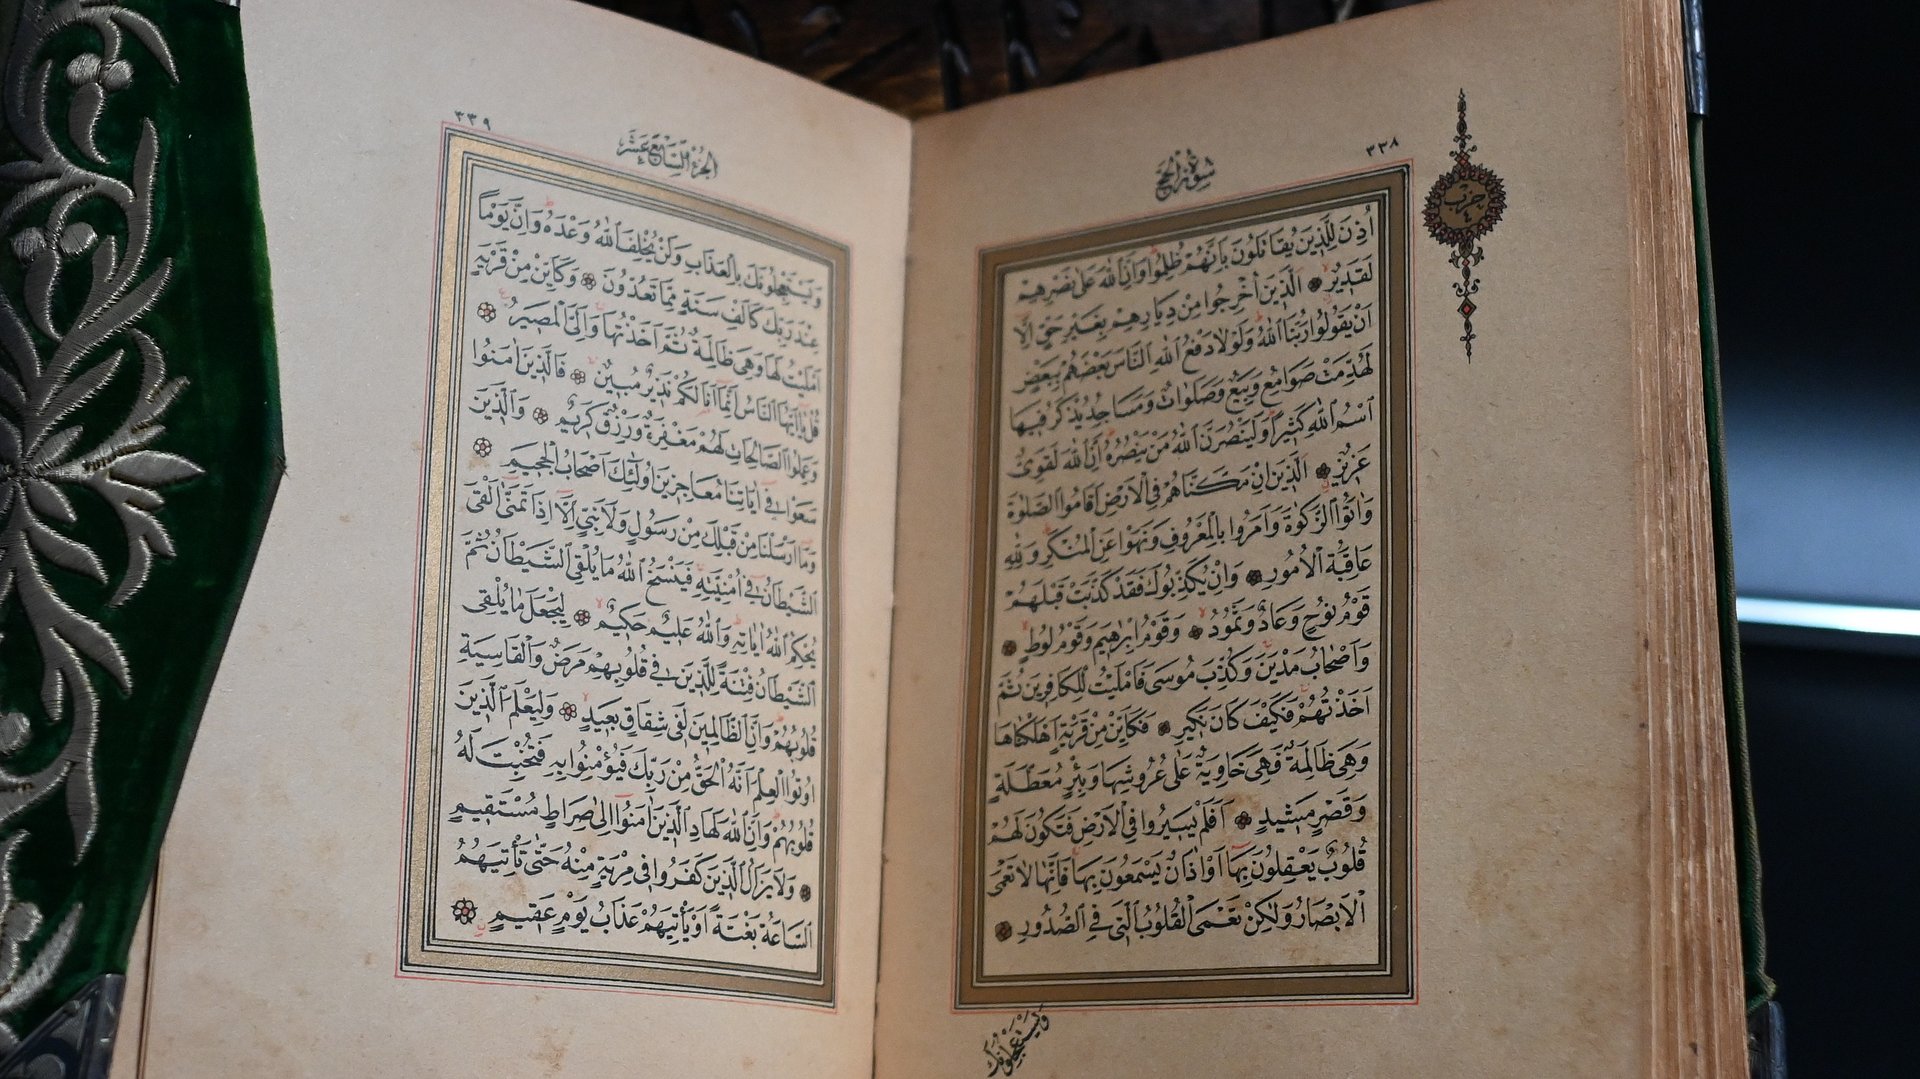 ٣٣٨
سورة الحج
حزب
٤
اُذِنَ لِلَّذِينَ يُقَاتَلُونَ بِاَنَّهُمْ ظُلِمُوا وَاِنَّ اللّٰهَ عَلٰى نَصْرِهِمْ
لَقَدِيرٌ ۝ اَلَّذِينَ اُخْرِجُوا مِنْ دِيَارِهِمْ بِغَيْرِ حَقٍّ اِلَّا
اَنْ يَقُولُوا رَبُّنَا اللّٰهُ وَلَوْلَا دَفْعُ اللّٰهِ النَّاسَ بَعْضَهُمْ بِبَعْضٍ
لَهُدِّمَتْ صَوَامِعُ وَبِيَعٌ وَصَلَوَاتٌ وَمَسَاجِدُ يُذْكَرُ فِيهَا
اسْمُ اللّٰهِ كَثِيرًا وَلَيَنْصُرَنَّ اللّٰهُ مَنْ يَنْصُرُهُ اِنَّ اللّٰهَ لَقَوِيٌّ
عَزِيزٌ ۝ اَلَّذِينَ اِنْ مَكَّنَّاهُمْ فِي الْاَرْضِ اَقَامُوا الصَّلٰوةَ
وَاٰتَوُا الزَّكٰوةَ وَاَمَرُوا بِالْمَعْرُوفِ وَنَهَوْا عَنِ الْمُنْكَرِ وَلِلّٰهِ
عَاقِبَةُ الْاُمُورِ ۝ وَاِنْ يُكَذِّبُوكَ فَقَدْ كَذَّبَتْ قَبْلَهُمْ
قَوْمُ نُوحٍ وَعَادٌ وَثَمُودُ ۝ وَقَوْمُ اِبْرٰهِيمَ وَقَوْمُ لُوطٍ ۝
وَاَصْحَابُ مَدْيَنَ وَكُذِّبَ مُوسٰى فَاَمْلَيْتُ لِلْكَافِرِينَ ثُمَّ
اَخَذْتُهُمْ فَكَيْفَ كَانَ نَكِيرِ ۝ فَكَاَيِّنْ مِنْ قَرْيَةٍ اَهْلَكْنَاهَا
وَهِيَ ظَالِمَةٌ فَهِيَ خَاوِيَةٌ عَلٰى عُرُوشِهَا وَبِئْرٍ مُعَطَّلَةٍ
وَقَصْرٍ مَشِيدٍ ۝ اَفَلَمْ يَسِيرُوا فِي الْاَرْضِ فَتَكُونَ لَهُمْ
قُلُوبٌ يَعْقِلُونَ بِهَا اَوْ اٰذَانٌ يَسْمَعُونَ بِهَا فَاِنَّهَا لَا تَعْمَى
الْاَبْصَارُ وَلٰكِنْ تَعْمَى الْقُلُوبُ الَّتِي فِي الصُّدُورِ ۝
وَيَسْتَعْجِلُونَكَ
٣٣٩
الجزء السابع عشر
وَيَسْتَعْجِلُونَكَ بِالْعَذَابِ وَلَنْ يُخْلِفَ اللّٰهُ وَعْدَهُ وَاِنَّ يَوْمًا
عِنْدَ رَبِّكَ كَاَلْفِ سَنَةٍ مِمَّا تَعُدُّونَ ۝ وَكَاَيِّنْ مِنْ قَرْيَةٍ
اَمْلَيْتُ لَهَا وَهِيَ ظَالِمَةٌ ثُمَّ اَخَذْتُهَا وَاِلَيَّ الْمَصِيرُ ۝
قُلْ يَا اَيُّهَا النَّاسُ اِنَّمَا اَنَا لَكُمْ نَذِيرٌ مُبِينٌ ۝ فَالَّذِينَ اٰمَنُوا
وَعَمِلُوا الصَّالِحَاتِ لَهُمْ مَغْفِرَةٌ وَرِزْقٌ كَرِيمٌ ۝ وَالَّذِينَ
سَعَوْا فِي اٰيَاتِنَا مُعَاجِزِينَ اُولٰئِكَ اَصْحَابُ الْجَحِيمِ ۝
وَمَا اَرْسَلْنَا مِنْ قَبْلِكَ مِنْ رَسُولٍ وَلَا نَبِيٍّ اِلَّا اِذَا تَمَنّٰى اَلْقَى
الشَّيْطَانُ فِي اُمْنِيَّتِهِ فَيَنْسَخُ اللّٰهُ مَا يُلْقِي الشَّيْطَانُ ثُمَّ
يُحْكِمُ اللّٰهُ اٰيَاتِهِ وَاللّٰهُ عَلِيمٌ حَكِيمٌ ۝ لِيَجْعَلَ مَا يُلْقِي
الشَّيْطَانُ فِتْنَةً لِلَّذِينَ فِي قُلُوبِهِمْ مَرَضٌ وَالْقَاسِيَةِ
قُلُوبُهُمْ وَاِنَّ الظَّالِمِينَ لَفِي شِقَاقٍ بَعِيدٍ ۝ وَلِيَعْلَمَ الَّذِينَ
اُوتُوا الْعِلْمَ اَنَّهُ الْحَقُّ مِنْ رَبِّكَ فَيُؤْمِنُوا بِهِ فَتُخْبِتَ لَهُ
قُلُوبُهُمْ وَاِنَّ اللّٰهَ لَهَادِ الَّذِينَ اٰمَنُوا اِلٰى صِرَاطٍ مُسْتَقِيمٍ
۝ وَلَا يَزَالُ الَّذِينَ كَفَرُوا فِي مِرْيَةٍ مِنْهُ حَتّٰى تَأْتِيَهُمُ
السَّاعَةُ بَغْتَةً اَوْ يَأْتِيَهُمْ عَذَابُ يَوْمٍ عَقِيمٍ ۝